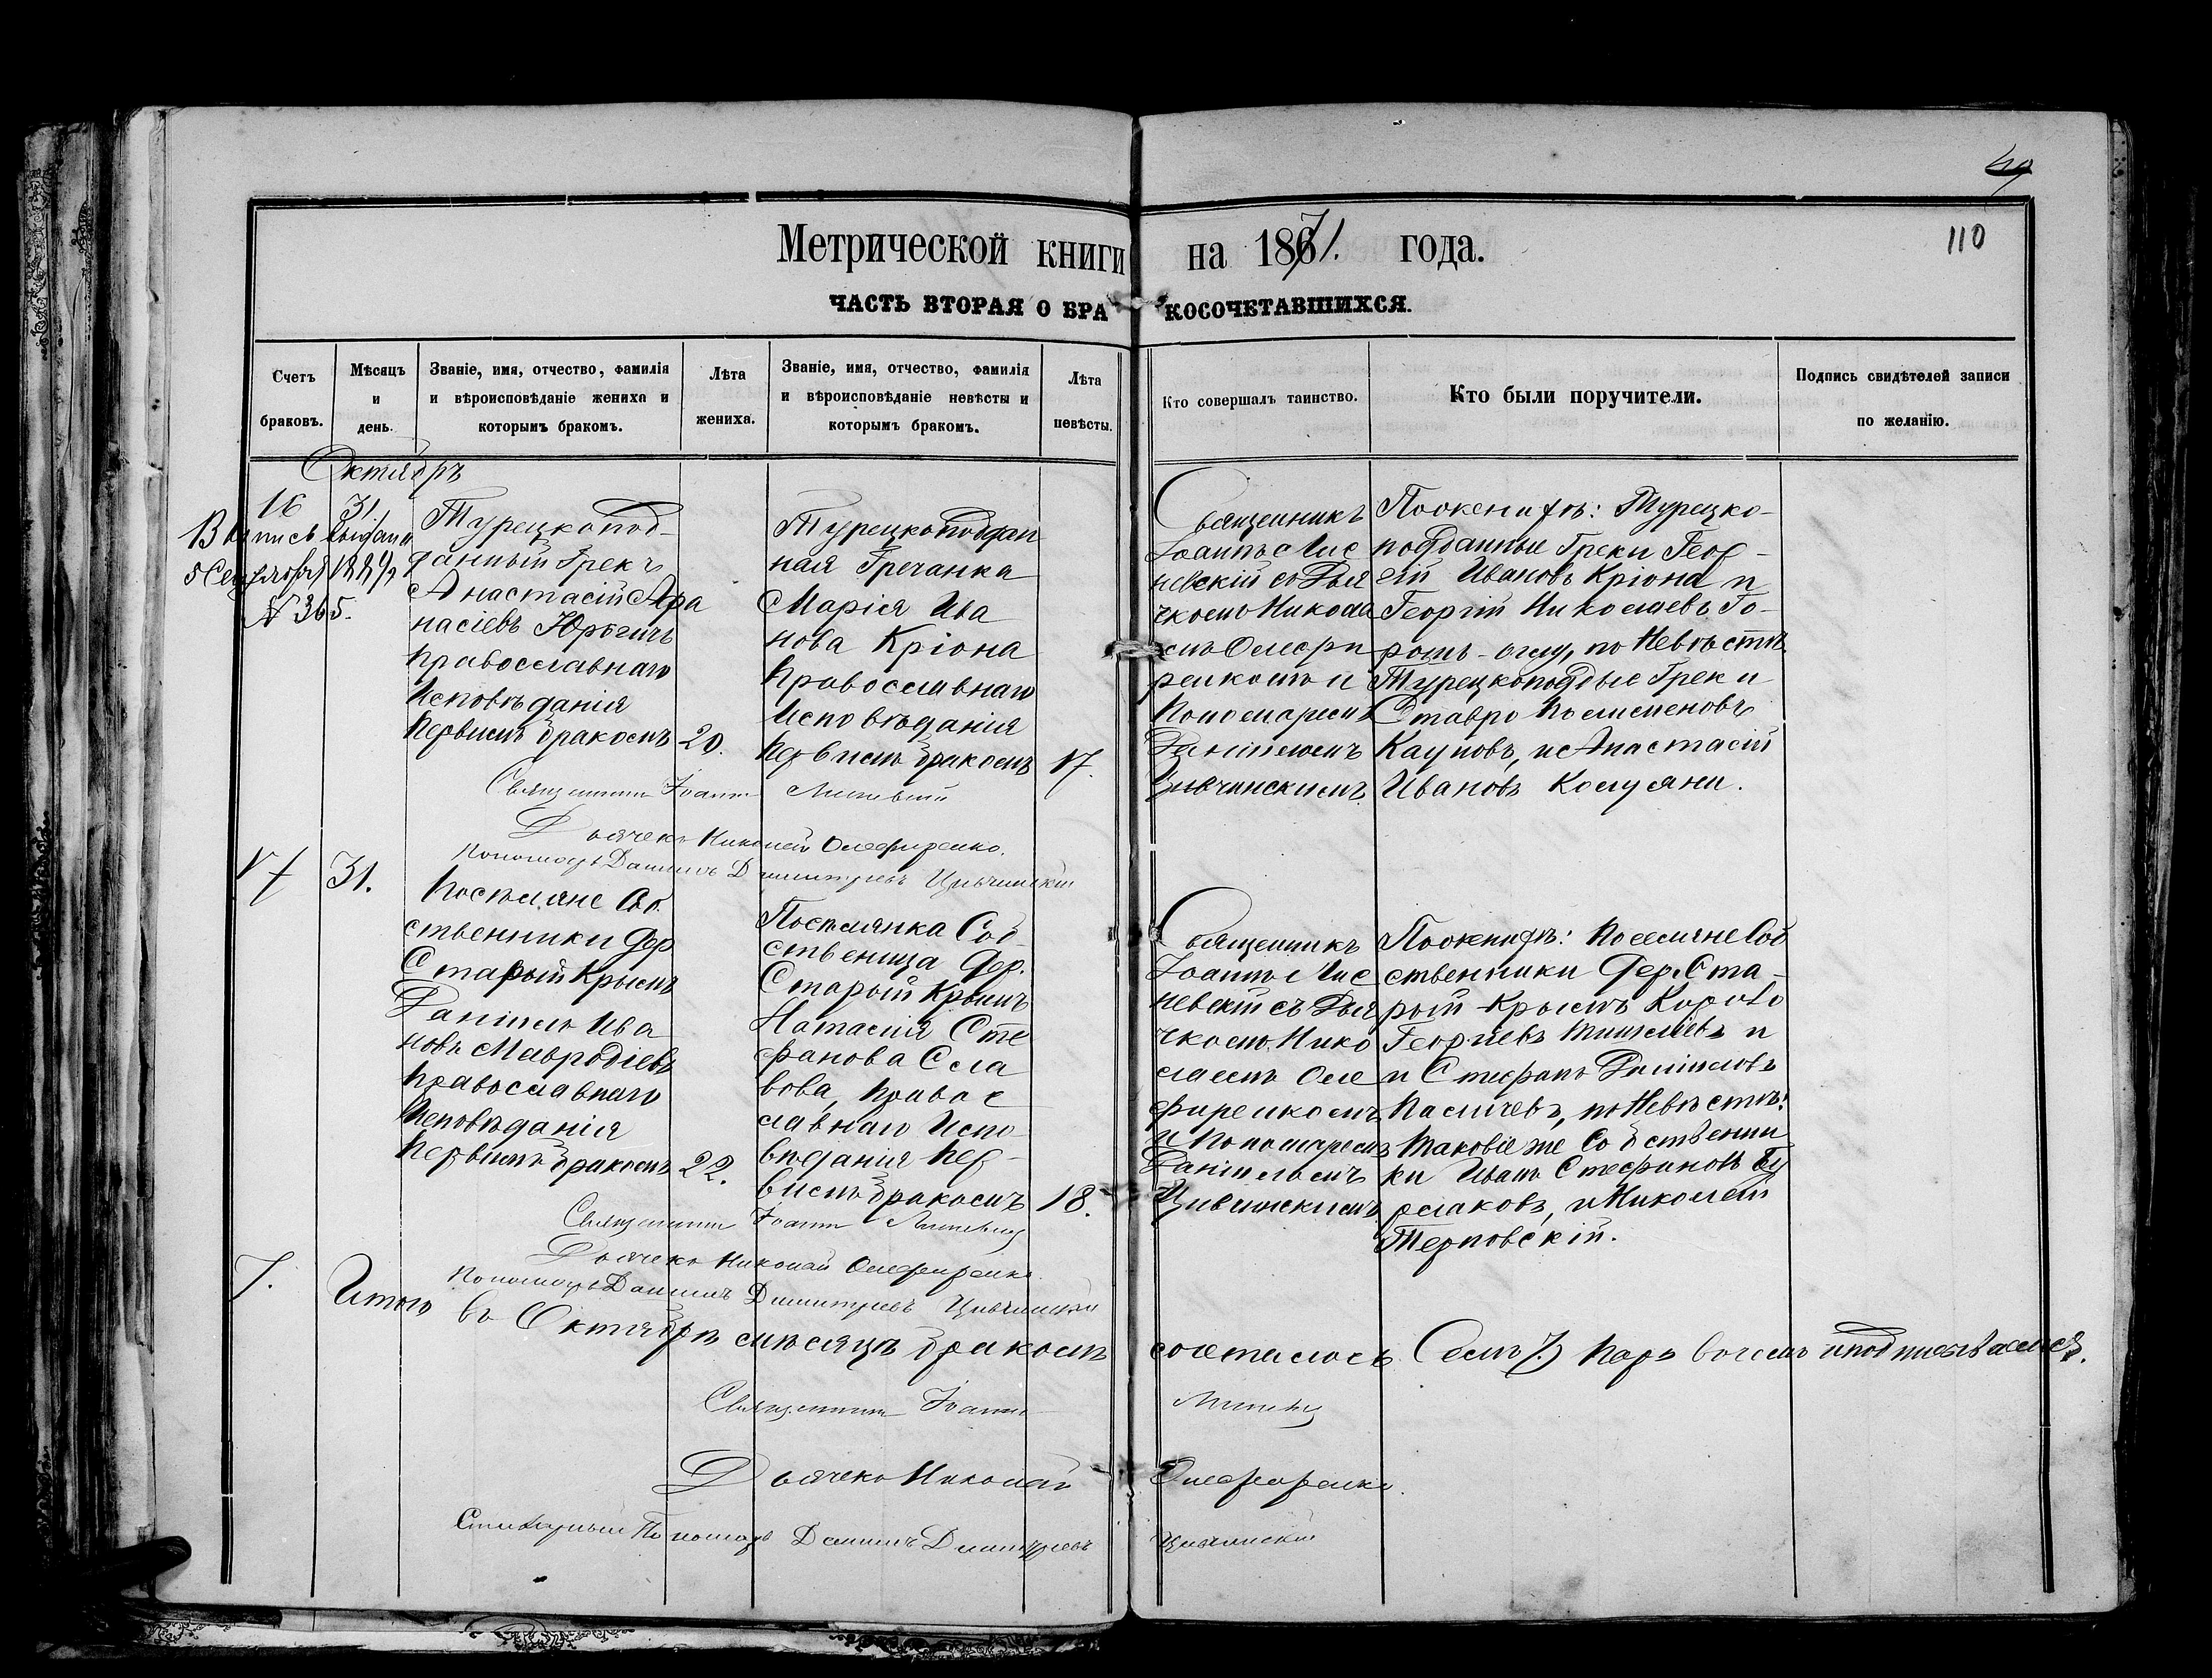 49
110
Метрической книги на 1871. года.
ЧАСТЬ ВТОРАЯ О БРАКОСОЧЕТАВШИХСЯ.
Счетъ браковъ.
Мѣсяцъ и день.
Званіе, имя, отчество, фамилія и вѣроисповѣданіе жениха и которымъ бракомъ.
Лѣта жениха.
Званіе, имя, отчество, фамилія и вѣроисповѣданіе невѣсты и которымъ бракомъ.
Лѣта невѣсты.
Кто совершалъ таинство.
Кто были поручители.
Подпись свидѣтелей записи по желанію.
Октябрь
16
31
Выпись выдана
5 Сентября
N 365.
Турецкопод-
данный Грекъ
Анастасій Афа
насіевъ
Православнаго
Исповѣданія
Первымъ бракомъ
20.
Турецкоподдан
ная Гречанка
Марія Ива
нова Кріона
Православнаго
Исповѣданія
Первымъ бракомъ
17.
Священникъ
Іоаннъ Лис
невскій съ Дья
чкомъ Никола
емъ Олефи
ренкомъ и
Пономаремъ
Даніиломъ
Цивчинскимъ.
По женихѣ: Турецко-
подданные Греки Геор-
гій Ивановъ Кріона и
Георгій Николаевъ
по Невѣстѣ
Турецкоподдые Греки
Ставро
Кауновъ, и Анастасій
Ивановъ
Священникъ Іоаннъ Лисневскій
Дьячекъ Николай Олефиренко.
Пономарь Даніилъ Димитріевъ Цивчинскій
17
31.
Поселяне Соб
ственники Дер
Старый Крымъ
Даніилъ Ива
новъ Мавродіевъ
Православнаго
Исповѣданія
Первымъ бракомъ
22.
Поселянка Соб
ственница Дер.
Старый Крымъ
Наталія Сте
фанова Сла
вова, Правос
лавнаго Испо-
вѣданія Пер-
вымъ бракомъ
18.
Священникъ
Іоаннъ Лис
невскій съ Дья
чкомъ Нико
лаемъ Оле
фиренкомъ
и Пономаремъ
Даніиломъ
Цивчинскимъ
По женихѣ: Поселяне Соб
ственники Дер. Ста-
рый Крымъ
Георгіевъ и
и Стефанъ Даніиловъ
по Невѣстѣ:
таковіе же Собственни
ки Иванъ Стефановъ Бу
рлаковъ, и Николай
Терновскій.
Священникъ Іоаннъ Лисневскій
Дьячекъ Николай Олефиренко.
Пономарь Даніилъ Димитріевъ Цивчинскій
7.
Итого въ Октябрѣ мѣсяцѣ бракомъ сочеталось Семь 7) паръ въ чемъ и подписываемся.
Священникъ Іоаннъ Лисневскій
Дьячекъ Николай Олефиренко.
Пономарь Даніилъ Димитріевъ Цивчинскій